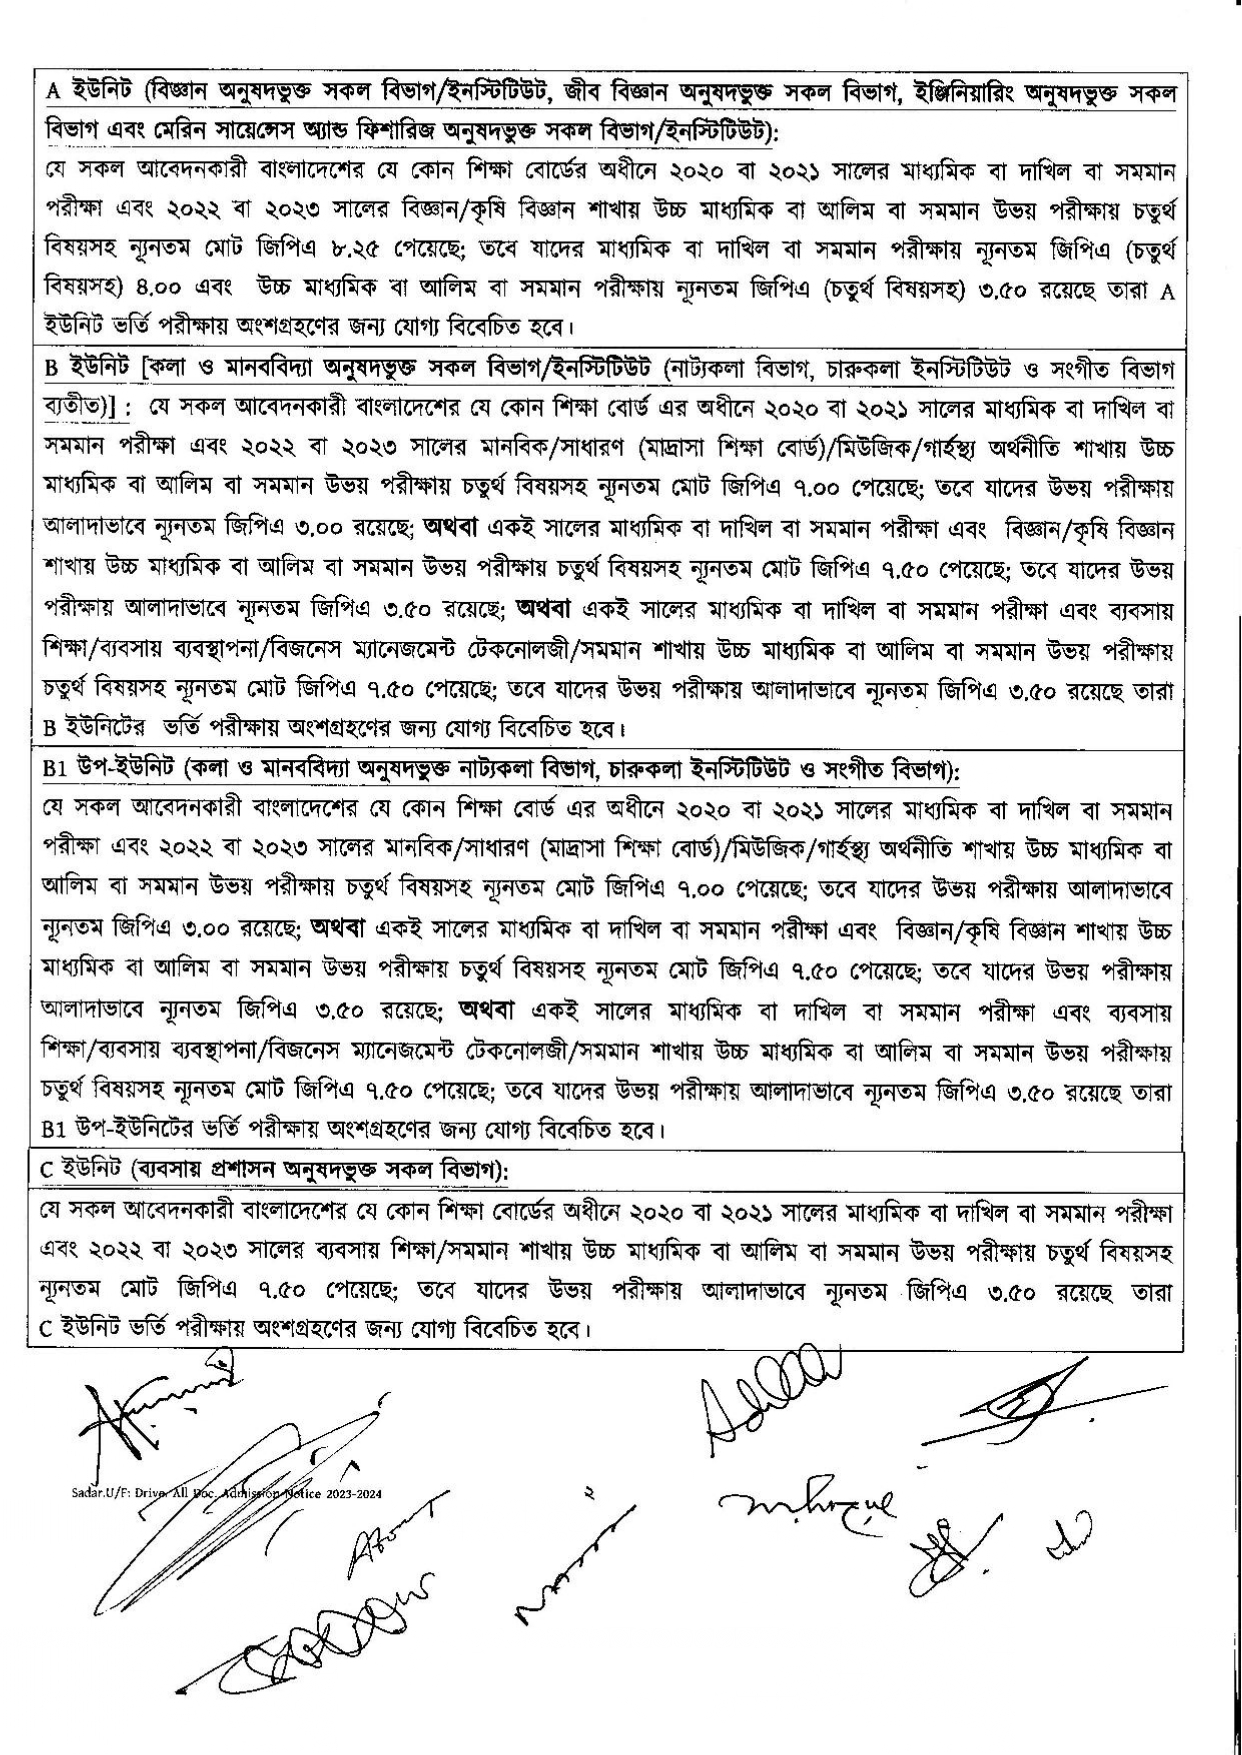 A ইউনিট (বিজ্ঞান অনুষদভুক্ত সকল বিভাগ/ইনস্টিটিউট, জীব বিজ্ঞান অনুষদভুক্ত সকল বিভাগ, ইঞ্জিনিয়ারিং অনুষদভুক্ত সকল
বিভাগ এবং মেরিন সায়েন্সেস অ্যান্ড ফিশারিজ অনুষদভুক্ত সকল বিভাগ/ইনস্টিটিউট):
যে সকল আবেদনকারী বাংলাদেশের যে কোন শিক্ষা বোর্ডের অধীনে ২০২০ বা ২০২১ সালের মাধ্যমিক বা দাখিল বা সমমান
পরীক্ষা এবং ২০২২ বা ২০২৩ সালের বিজ্ঞান/কৃষি বিজ্ঞান শাখায় উচ্চ মাধ্যমিক বা আলিম বা সমমান উভয় পরীক্ষায় চতুর্থ
বিষয়সহ ন্যূনতম মোট জিপিএ ৮.২৫ পেয়েছে; তবে যাদের মাধ্যমিক বা দাখিল বা সমমান পরীক্ষায় ন্যূনতম জিপিএ (চতুর্থ
বিষয়সহ) ৪.০০ এবং উচ্চ মাধ্যমিক বা আলিম বা সমমান পরীক্ষায় ন্যূনতম জিপিএ (চতুর্থ বিষয়সহ) ৩.৫০ রয়েছে তারা A
ইউনিট ভর্তি পরীক্ষায় অংশগ্রহণের জন্য যোগ্য বিবেচিত হবে।
B ইউনিট [কলা ও মানববিদ্যা অনুষদভুক্ত সকল বিভাগ/ইনস্টিটিউট (নাট্যকলা বিভাগ, চারুকলা ইনস্টিটিউট ও সংগীত বিভাগ
ব্যতীত)] : যে সকল আবেদনকারী বাংলাদেশের যে কোন শিক্ষা বোর্ড এর অধীনে ২০২০ বা ২০২১ সালের মাধ্যমিক বা দাখিল বা
সমমান পরীক্ষা এবং ২০২২ বা ২০২৩ সালের মানবিক/সাধারণ (মাদ্রাসা শিক্ষা বোর্ড)/মিউজিক/গার্হস্থ্য অর্থনীতি শাখায় উচ্চ
মাধ্যমিক বা আলিম বা সমমান উভয় পরীক্ষায় চতুর্থ বিষয়সহ ন্যূনতম মোট জিপিএ ৭.০০ পেয়েছে; তবে যাদের উভয় পরীক্ষায়
আলাদাভাবে ন্যূনতম জিপিএ ৩.০০ রয়েছে; অথবা একই সালের মাধ্যমিক বা দাখিল বা সমমান পরীক্ষা এবং বিজ্ঞান/কৃষি বিজ্ঞান
শাখায় উচ্চ মাধ্যমিক বা আলিম বা সমমান উভয় পরীক্ষায় চতুর্থ বিষয়সহ ন্যূনতম মোট জিপিএ ৭.৫০ পেয়েছে; তবে যাদের উভয়
পরীক্ষায় আলাদাভাবে ন্যূনতম জিপিএ ৩.৫০ রয়েছে; অথবা একই সালের মাধ্যমিক বা দাখিল বা সমমান পরীক্ষা এবং ব্যবসায়
শিক্ষা/ব্যবসায় ব্যবস্থাপনা/বিজনেস ম্যানেজমেন্ট টেকনোলজী/সমমান শাখায় উচ্চ মাধ্যমিক বা আলিম বা সমমান উভয় পরীক্ষায়
চতুর্থ বিষয়সহ ন্যূনতম মোট জিপিএ ৭.৫০ পেয়েছে; তবে যাদের উভয় পরীক্ষায় আলাদাভাবে ন্যূনতম জিপিএ ৩.৫০ রয়েছে তারা
B ইউনিটের ভর্তি পরীক্ষায় অংশগ্রহণের জন্য যোগ্য বিবেচিত হবে।
B1 উপ-ইউনিট (কলা ও মানববিদ্যা অনুষদভুক্ত নাট্যকলা বিভাগ, চারুকলা ইনস্টিটিউট ও সংগীত বিভাগ):
যে সকল আবেদনকারী বাংলাদেশের যে কোন শিক্ষা বোর্ড এর অধীনে ২০২০ বা ২০২১ সালের মাধ্যমিক বা দাখিল বা সমমান
পরীক্ষা এবং ২০২২ বা ২০২৩ সালের মানবিক/সাধারণ (মাদ্রাসা শিক্ষা বোর্ড)/মিউজিক/গার্হস্থ্য অর্থনীতি শাখায় উচ্চ মাধ্যমিক বা
আলিম বা সমমান উভয় পরীক্ষায় চতুর্থ বিষয়সহ ন্যূনতম মোট জিপিএ ৭.০০ পেয়েছে; তবে যাদের উভয় পরীক্ষায় আলাদাভাবে
ন্যূনতম জিপিএ ৩.০০ রয়েছে; অথবা একই সালের মাধ্যমিক বা দাখিল বা সমমান পরীক্ষা এবং বিজ্ঞান/কৃষি বিজ্ঞান শাখায় উচ্চ
মাধ্যমিক বা আলিম বা সমমান উভয় পরীক্ষায় চতুর্থ বিষয়সহ ন্যূনতম মোট জিপিএ ৭.৫০ পেয়েছে; তবে যাদের উভয় পরীক্ষায়
আলাদাভাবে ন্যূনতম জিপিএ ৩.৫০ রয়েছে; অথবা একই সালের মাধ্যমিক বা দাখিল বা সমমান পরীক্ষা এবং ব্যবসায়
শিক্ষা/ব্যবসায় ব্যবস্থাপনা/বিজনেস ম্যানেজমেন্ট টেকনোলজী/সমমান শাখায় উচ্চ মাধ্যমিক বা আলিম বা সমমান উভয় পরীক্ষায়
চতুর্থ বিষয়সহ ন্যূনতম মোট জিপিএ ৭.৫০ পেয়েছে; তবে যাদের উভয় পরীক্ষায় আলাদাভাবে ন্যূনতম জিপিএ ৩.৫০ রয়েছে তারা
B1 উপ-ইউনিটের ভর্তি পরীক্ষায় অংশগ্রহণের জন্য যোগ্য বিবেচিত হবে।
C ইউনিট (ব্যবসায় প্রশাসন অনুষদভুক্ত সকল বিভাগ):
যে সকল আবেদনকারী বাংলাদেশের যে কোন শিক্ষা বোর্ডের অধীনে ২০২০ বা ২০২১ সালের মাধ্যমিক বা দাখিল বা সমমান পরীক্ষা
এবং ২০২২ বা ২০২৩ সালের ব্যবসায় শিক্ষা/সমমান শাখায় উচ্চ মাধ্যমিক বা আলিম বা সমমান উভয় পরীক্ষায় চতুর্থ বিষয়সহ
ন্যূনতম মোট জিপিএ ৭.৫০ পেয়েছে; তবে যাদের উভয় পরীক্ষায় আলাদাভাবে ন্যূনতম জিপিএ ৩.৫০ রয়েছে তারা
C ইউনিট ভর্তি পরীক্ষায় অংশগ্রহণের জন্য যোগ্য বিবেচিত হবে।
Sadar.U/F: Drive, All Doc. Admission Notice 2023-2024
২